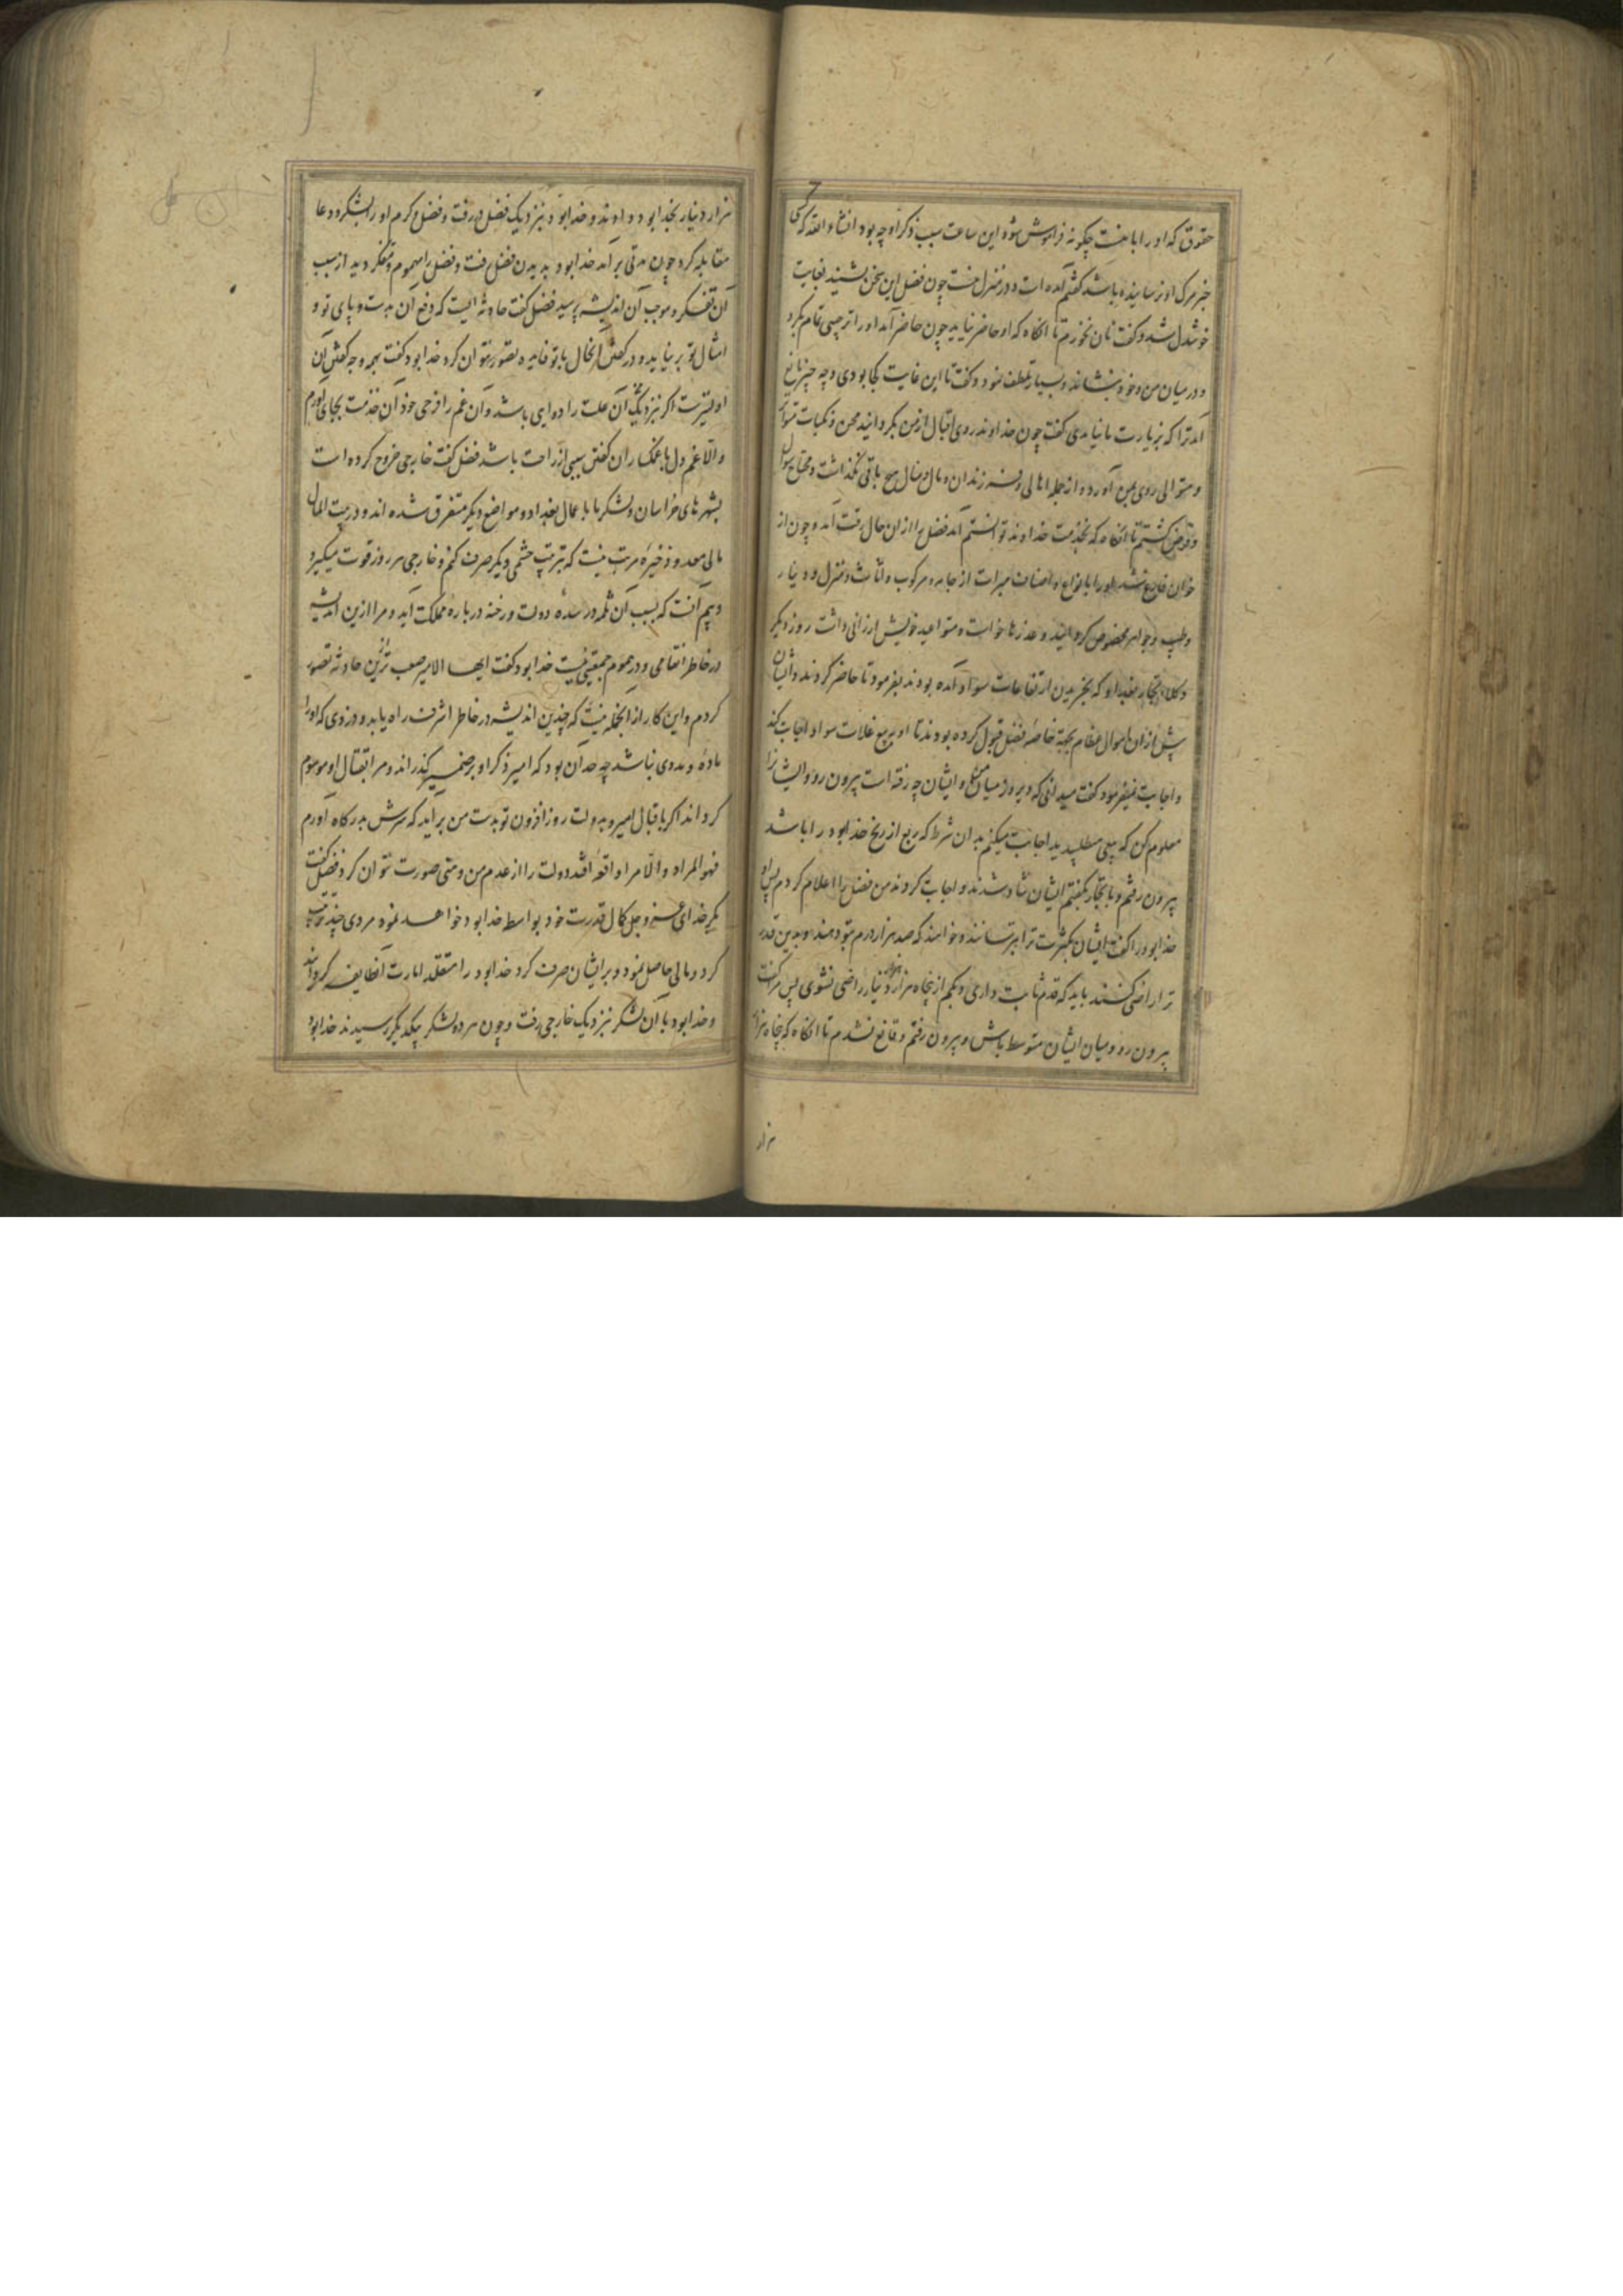 حقوق که او را با منست چگونه فراموش شود این ساعت سبب ذکر او چه بود انشاء الله که کسی
خبر مرک او نرسانیده باشد گفتم آمده است و در منزل منست چون فضل این سخن بشنید بغایت
خوشدل شد و گفت نان نخورم تا آنکاه که او حاضر نیاید چون حاضر آمد او را ترحیبی تمام بکرد
و در میان من و خود بنشاند و بسیار تلطف نمود و گفت تا این غایت کجا بودی و چه چیز مانع
آمد ترا که بزیارت ما نیامدی گفت چون خداوند روی اقبال از من بگردانید محن و نکبات متواتر
و متوالی روی بمن آورد و از جمله اهالی و فرزندان و مال و منال هیچ باقی نگذاشت و محتاج سوال
و قرض گشتم تا آنکاه که بخدمت خداوند توانستم آمد فضل را از ان حال رقت آمد و چون از
خوان فارغ شد او را بانواع و اصناف مبرات از جامه و مرکوب و اثاث و منزل و دینار
و طیب و جواهر مخصوص گردانید و عذرها خواست و مواعید خویش ارزانی داشت روز دیگر
وکلاء تجار بغداد که بخریدن ارتفاعات سواد آمده بودند بفرمود تا حاضر کردند و ایشان
پیش از ان اموال عظام بجهة خاصهٔ فضل قبول کرده بودند تا او بر بیع غلات سواد اجابت کند
و اجابت نمیفرمود گفت میدانی که دیروز میان من و ایشان چه رفته است بیرون رو و ایشانرا
معلوم کن که بیعی مطلبید اجابت میکنم بدان شرط که ربع از ربح خدابود را باشد
بیرون رفتم و با تجار بگفتم ایشان شاد شدند و اجابت کردند من فضل را اعلام کردم پس او
خدابود را گفت ایشان بکثرت ترا بترسانند و خواهند که صد هزار درم بتو دهند و بدین قدر
ترا راضی کنند باید که قدم ثابت داری و بکم از پنجاه هزار دینار راضی نشوی پس مرا گفت
بیرون رو و میان ایشان متوسط باش و بیرون رفتم و قانع نشدم تا آنکاه که پنجاه هزار
هزار
هزار دینار بخدابود دادند و خدابود نزدیک فضل در رفت و فضل و کرم او را بشکر و دعا
مقابله کرد چون مدتی برآمد خدابود بدیدن فضل رفت و فضل را مهموم و متفکر دید از سبب
آن تفکر و موجب آن اندیشه پرسید فضل گفت حادثه ایست که دفع آن بدست و پای تو و
امثال تو بر نیاید و در گفتن آنحال با تو فایده تصور نتوان کرد خدابود گفت بهمه وجه گفتن آن
اولیترست اگر نزدیک من آن علت را دوای باشد و آن غم را فرحی خود آن خدمت بجای آورم
و الا غم دل با غمگساران گفتن سببی از راحت باشد فضل گفت خارجی خروج کرده است
بشهرهای خراسان و لشکر ما باعمال بغداد و مواضع دیگر متفرق شده اند و در بیت المال
مالی معد و ذخیرهٔ مرتب نیست که بترتیب حشمی دیگر صرف کنم و خارجی هر روز قوت میگیرد
و بیم آنست که بسبب آن ثلمه در سدهٔ دولت و رخنه در بارهٔ مملکت آید و مرا ازین اندیشه
در خاطر انتقامی و در هموم جمعیتی نیست خدابود گفت ایها الامیر صعب تر ازین حادثه تصور
کردم و این کار از آنجمله نیست که چندین اندیشه در خاطر اشرف راه یابد و دزدی که او را
مادهٔ و مددی نباشد چه حد آن بود که امیر ذکر او بر ضمیر گذراند و مرا بقتال او موسوم
گرداند اگر باقبال امیر و بدولت روز افزون تو بدست من برآید که سرش بدرگاه آورم
فهو المراد و الا مرا واقعهٔ افتد دولت را از عدم من وهنی صورت نتوان کرد فضل گفت
مگر خدای عز و جل کمال قدرت خود بواسطه خدابود خواهد نمود مردی چند ترتیب
کرد و مالی حاصل نمود و بر ایشان صرف کرد خدابود را متقلد امارت آنطایفه گردانید
و خدابود با آن لشکر نزدیک خارجی رفت و چون هر دو لشکر بیکدیگر رسیدند خدابود